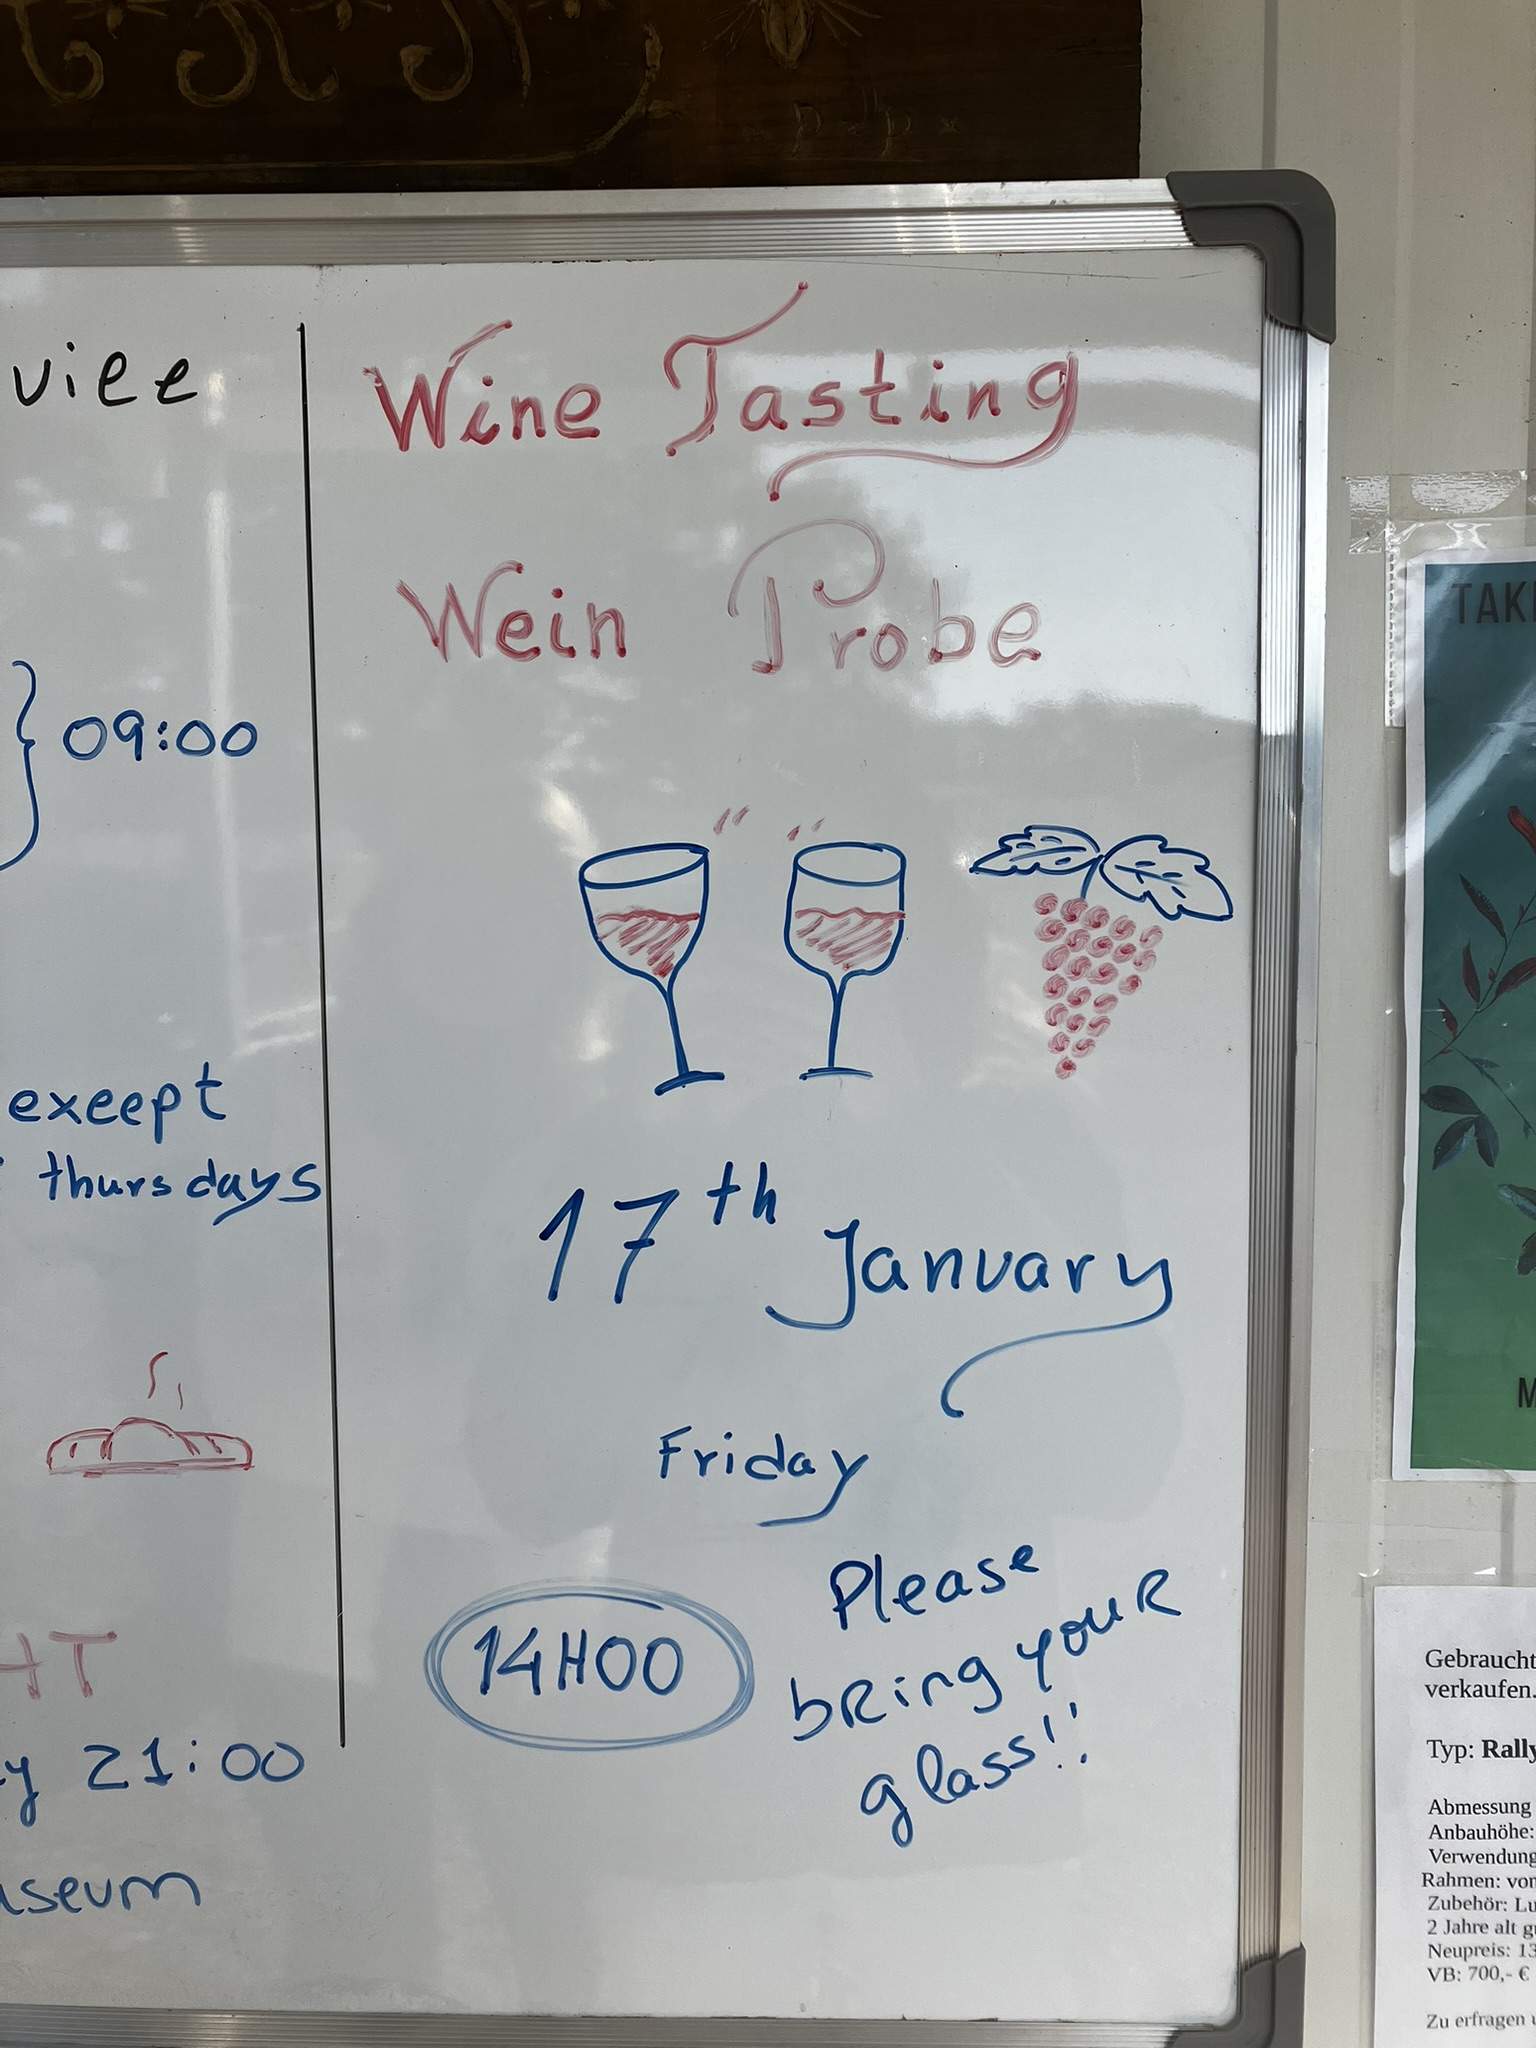 09:00
except
thursdays
21:00
Wine Tasting
Wein Probe
17th January
Friday
14H00
Please
bring your
glass!!
TAK
Gebraucht
verkaufen.
Typ: Rally
Abmessung
Anbauhöhe:
Verwendung
Rahmen: von
Zubehör: Lu
2 Jahre alt g
Neupreis: 13
VB: 700,- €
Zu erfragen u